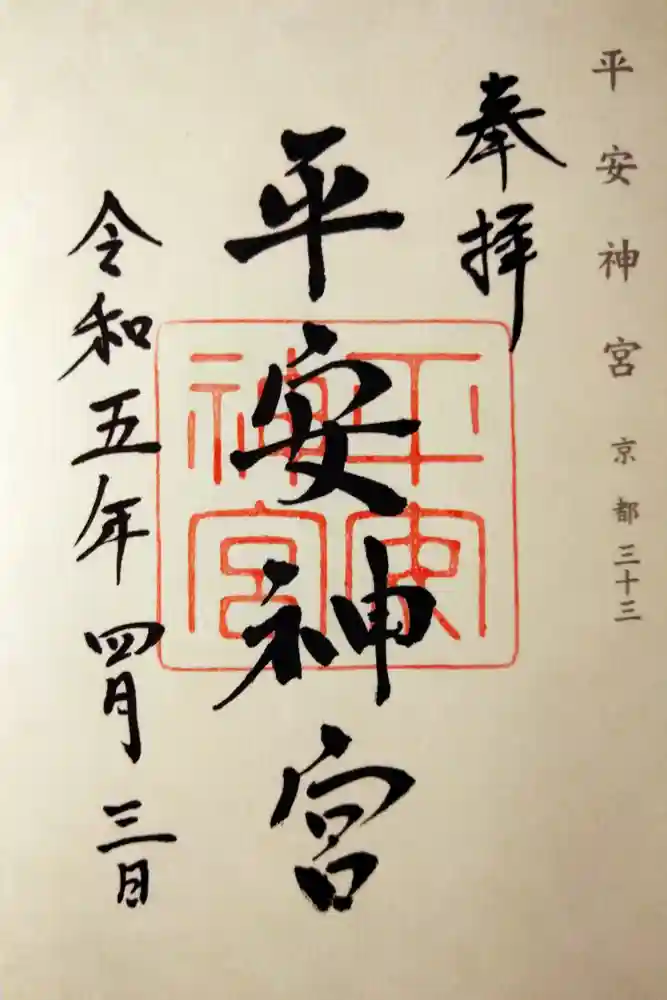 平安神宮 京都三十三
奉拝
平安神宮
平安神宮
令和五年四月三日